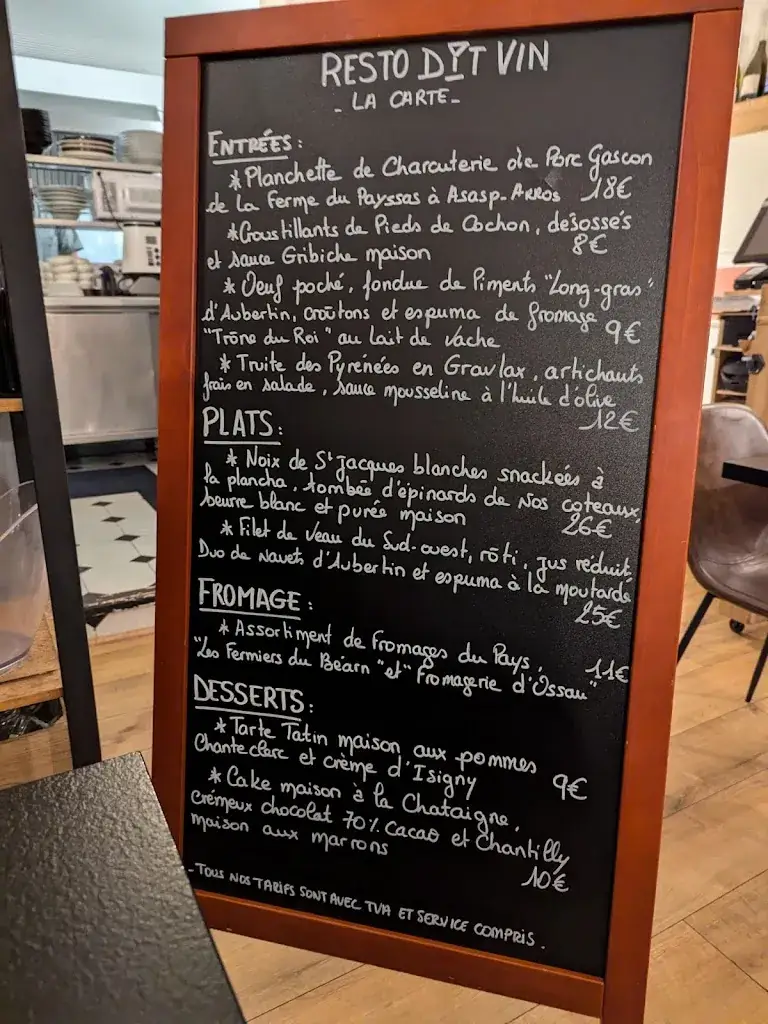 RESTO DIT VIN
- LA CARTE -
ENTRÉES :
* Planchette de Charcuterie de Porc Gascon
de La Ferme du Payssas à Asasp-Arros 18€
* Croustillants de Pieds de Cochon, désossés
et sauce Gribiche maison 8€
* Oeuf poché, fondue de Piments "Long-gras"
d'Aubertin, croûtons et espuma de fromage
"Trône du Roi" au lait de vache 9€
* Truite des Pyrénées en Gravlax, artichauts
frais en salade, sauce mousseline à l'huile d'olive
12€
PLATS :
* Noix de St Jacques blanches snackées à
la plancha, tombée d'épinards de nos coteaux,
beurre blanc et purée maison 26€
* Filet de veau du Sud-ouest, rôti, jus réduit,
Duo de navets d'Aubertin et espuma à la moutarde
25€
FROMAGE :
* Assortiment de fromages du Pays, 11€
"Les Fermiers du Béarn" et "Fromagerie d'Ossau"
DESSERTS :
* Tarte Tatin maison aux pommes
Chanteclerc et crème d'Isigny 9€
* Cake maison à la Chataigne,
crémeux chocolat 70% cacao et Chantilly
maison aux marrons 10€
- TOUS NOS TARIFS SONT AVEC TVA ET SERVICE COMPRIS.